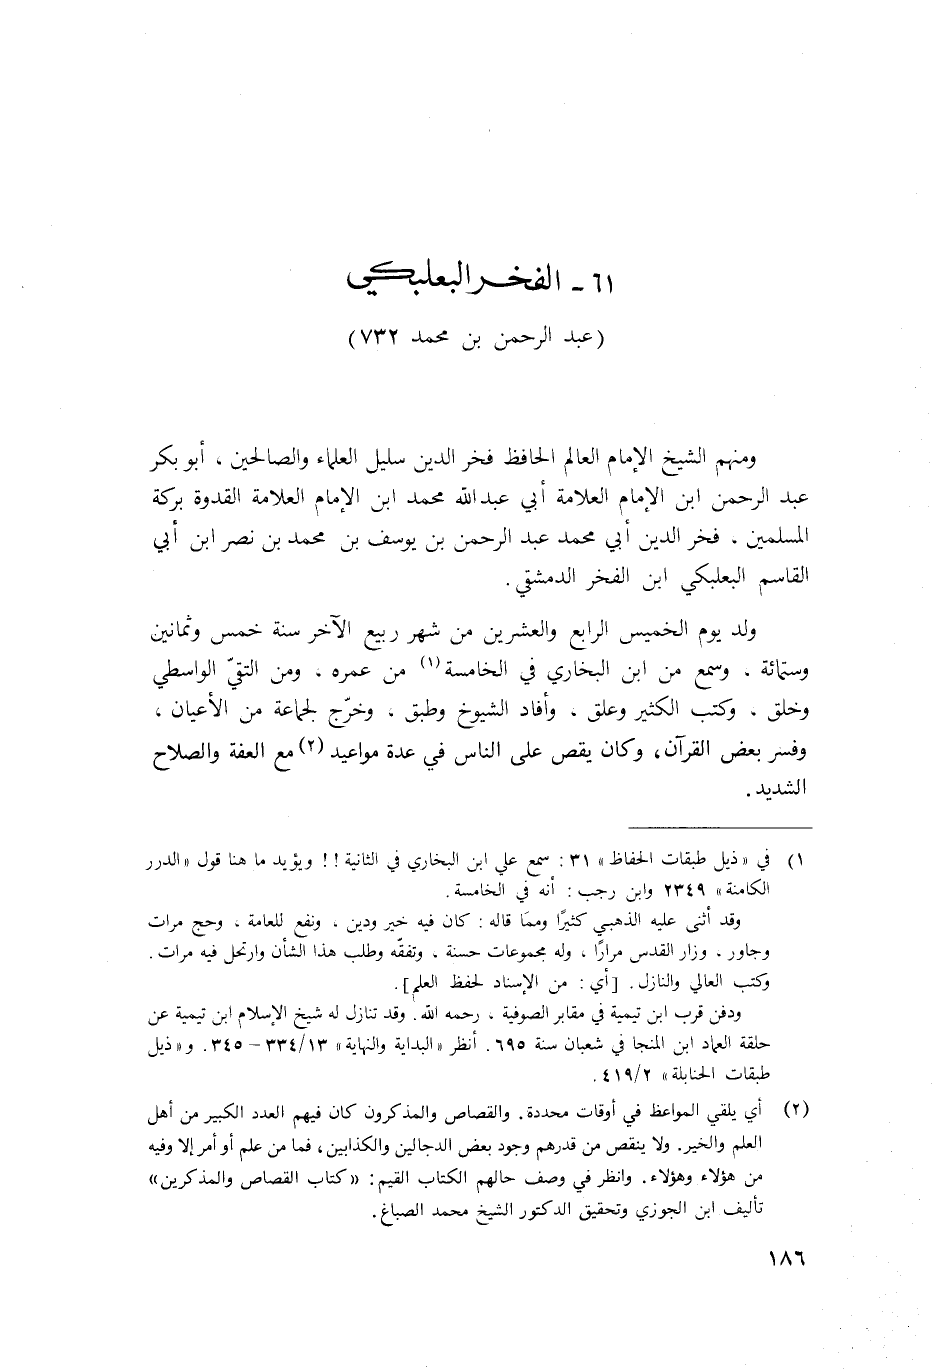 ٦١ - الفخر البعلبكي
(عبد الرحمن بن محمد ٧٣٢)
ومنهم الشيخ الإمام العالم الحافظ فخر الدين سليل العلماء والصالحين ، أبو بكر
عبد الرحمن ابن الإمام العلامة أبي عبدالله محمد ابن الإمام العلامة القدوة بركة
المسلمين . فخر الدين أبي محمد عبد الرحمن بن يوسف بن محمد بن نصر ابن أبي
القاسم البعلبكي ابن الفخر الدمشقي .
ولد يوم الخميس الرابع والعشرين من شهر ربيع الآخر سنة خمس وثمانين
وستمائة . وسمع من ابن البخاري في الخامسة (١) من عمره ، ومن التقيّ الواسطي
وخلق . وكتب الكثير وعلق . وأفاد الشيوخ وطبق . وخرّج لجماعة من الأعيان ،
وفسر بعض القرآن، وكان يقص على الناس في عدة مواعيد (٢) مع العفة والصلاح
الشديد .
١) في «ذيل طبقات الحفاظ» ٣١ : سمع علي ابن البخاري في الثانية !! ويؤيد ما هنا قول «الدرر
الكامنة» ٢٣٤٩ وابن رجب : أنه في الخامسة .
وقد أثنى عليه الذهبي كثيرًا ومما قاله : كان فيه خير ودين ، ونفع للعامة ، وحج مرات
وجاور ، وزار القدس مرارًا ، وله مجموعات حسنة ، وتفقّه وطلب هذا الشأن وارتحل فيه مرات .
وكتب العالي والنازل . [أي : من الإسناد لحفظ العلم] .
ودفن قرب ابن تيمية في مقابر الصوفية ، رحمه الله . وقد تنازل له شيخ الإسلام ابن تيمية عن
حلقة العماد ابن المنجا في شعبان سنة ٦٩٥ . أنظر «البداية والنهاية» ٣٣٤/١٣ – ٣٤٥ . و«ذيل
طبقات الحنابلة» ٤١٩/٢ .
(٢) أي يلقي المواعظ في أوقات محددة. والقصاص والمذكرون كان فيهم العدد الكبير من أهل
العلم والخير. ولا ينقص من قدرهم وجود بعض الدجالين والكذابين، فما من علم أو أمر إلا وفيه
من هؤلاء وهؤلاء. وانظر في وصف حالهم الكتاب القيم: «كتاب القصاص والمذكرين»
تأليف ابن الجوزي وتحقيق الدكتور الشيخ محمد الصباغ.
١٨٦